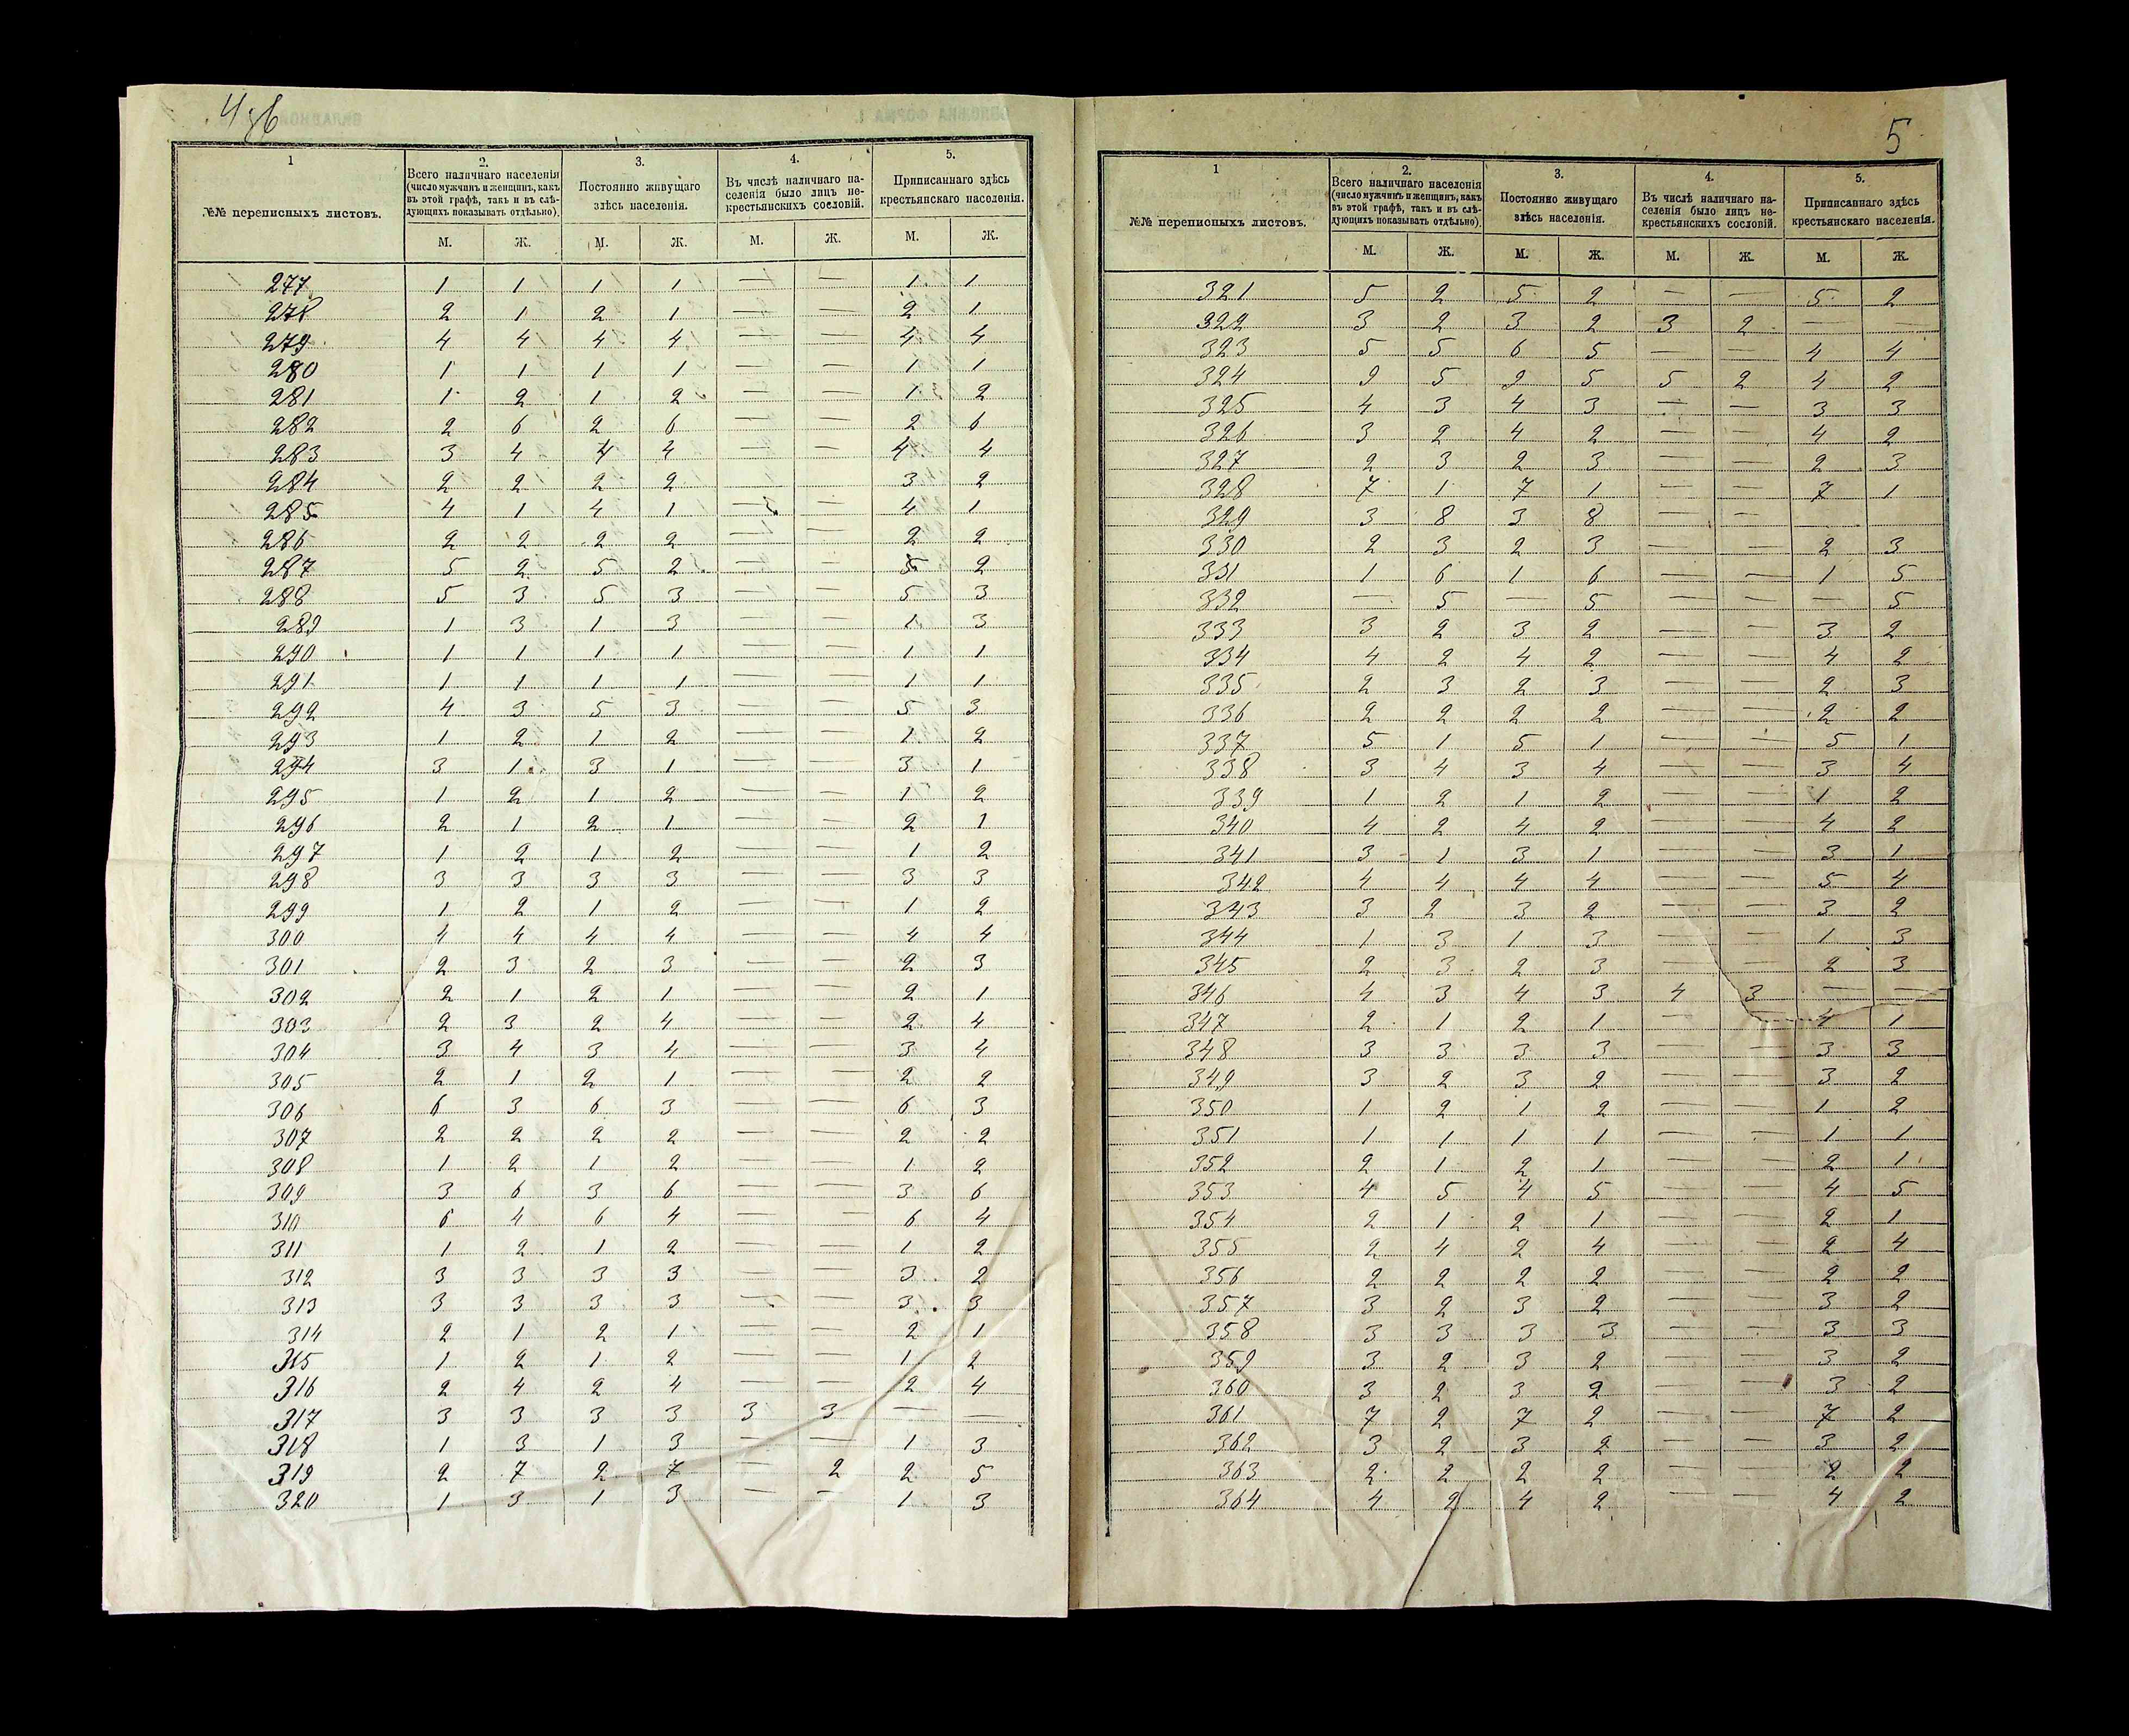 1
2.
3.
4.
5.
№№ переписныхъ листовъ.
Всего наличнаго населенія
(число мужчинъ и женщинъ, какъ
въ этой графѣ, такъ и въ слѣ-
дующихъ показывать отдѣльно).
Постоянно живущаго
здѣсь населенія.
Въ числѣ наличнаго на-
селенія было лицъ не-
крестьянскихъ сословій.
Приписаннаго здѣсь
крестьянскаго населенія.
М. Ж. М. Ж. М. Ж. М. Ж.
277 1 1 1 1 — — 1 1
278 2 1 2 1 — — 2 1
279 4 4 4 4 — — 4 4
280 1 1 1 1 — — 1 1
281 1 2 1 2 — — 1 2
282 2 6 2 6 — — 2 6
283 3 4 4 4 — — 4 4
284 2 2 2 2 — — 3 2
285 4 1 4 1 — — 4 1
286 2 2 2 2 — — 2 2
287 5 2 5 2 — — 5 2
288 5 3 5 3 — — 5 3
289 1 3 1 3 — — 1 3
290 1 1 1 1 — — 1 1
291 1 1 1 1 — — 1 1
292 4 3 5 3 — — 5 3
293 1 2 1 2 — — 1 2
294 3 1 3 1 — — 3 1
295 1 2 1 2 — — 1 2
296 2 1 2 1 — — 2 1
297 1 2 1 2 — — 1 2
298 3 3 3 3 — — 3 3
299 1 2 1 2 — — 1 2
300 4 4 4 4 — — 4 4
301 2 3 2 3 — — 2 3
302 2 1 2 1 — — 2 1
303 2 3 2 4 — — 2 4
304 3 4 3 4 — — 3 4
305 2 1 2 1 — — 2 2
306 6 3 6 3 — — 6 3
307 2 2 2 2 — — 2 2
308 1 2 1 2 — — 1 2
309 3 6 3 6 — — 3 6
310 6 4 6 4 — — 6 4
311 1 2 1 2 — — 1 2
312 3 3 3 3 — — 3 2
313 3 3 3 3 — — 3 3
314 2 1 2 1 — — 2 1
315 1 2 1 2 — — 1 2
316 2 4 2 4 — — 2 4
317 3 3 3 3 3 3 — —
318 1 3 1 3 — — 1 3
319 2 7 2 7 — 2 2 5
320 1 3 1 3 — — 1 3
5
1
2.
3.
4.
5.
№№ переписныхъ листовъ.
Всего наличнаго населенія
(число мужчинъ и женщинъ, какъ
въ этой графѣ, такъ и въ слѣ-
дующихъ показывать отдѣльно).
Постоянно живущаго
здѣсь населенія.
Въ числѣ наличнаго на-
селенія было лицъ не-
крестьянскихъ сословій.
Приписаннаго здѣсь
крестьянскаго населенія.
М. Ж. М. Ж. М. Ж. М. Ж.
321 5 2 5 2 — — 5 2
322 3 2 3 2 3 2 — —
323 5 5 6 5 — — 4 4
324 9 5 9 5 5 2 4 2
325 4 3 4 3 — — 3 3
326 3 2 4 2 — — 4 2
327 2 3 2 3 — — 2 3
328 7 1 7 1 — — 7 1
329 3 8 3 8 — —
330 2 3 2 3 — — 2 3
331 1 6 1 6 — — 1 5
332 — 5 — 5 — — — 5
333 3 2 3 2 — — 3 2
334 4 2 4 2 — — 4 2
335 2 3 2 3 — — 2 3
336 2 2 2 2 — — 2 2
337 5 1 5 1 — — 5 1
338 3 4 3 4 — — 3 4
339 1 2 1 2 — — 1 2
340 4 2 4 2 — — 4 2
341 3 1 3 1 — — 3 1
342 4 4 4 4 — — 5 4
343 3 2 3 2 — — 3 2
344 1 3 1 3 — — 1 3
345 2 3 2 3 — — 2 3
346 4 3 4 3 4 3 — —
347 2 1 2 1 — — 4 1
348 3 3 3 3 — — 3 3
349 3 2 3 2 — — 3 2
350 1 2 1 2 — — 1 2
351 1 1 1 1 — — 1 1
352 2 1 2 1 — — 2 1
353 4 5 4 5 — — 4 5
354 2 1 2 1 — — 2 1
355 2 4 2 4 — — 2 4
356 2 2 2 2 — — 2 2
357 3 2 3 2 — — 3 2
358 3 3 3 3 — — 3 3
359 3 2 3 2 — — 3 2
360 3 2 3 2 — — 3 2
361 7 2 7 2 — — 7 2
362 3 2 3 2 — — 3 2
363 2 2 2 2 — — 2 2
364 4 2 4 2 — — 4 2